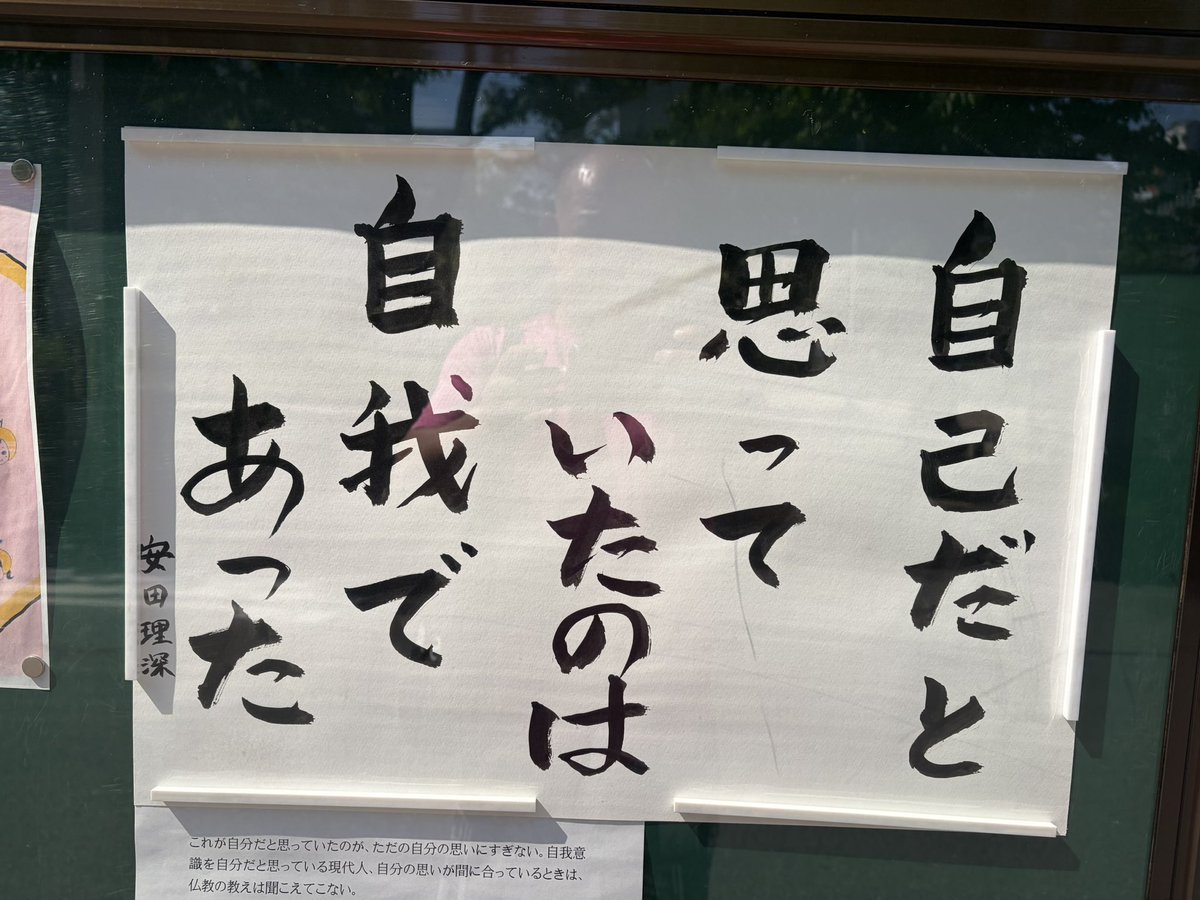 自己だと
思って
いたのは
自我で
あった
安田理深
これが自分だと思っていたのが、ただの自分の思いにすぎない。自我意
識を自分だと思っている現代人、自分の思いが間に合っているときは、
仏教の教えは聞こえてこない。